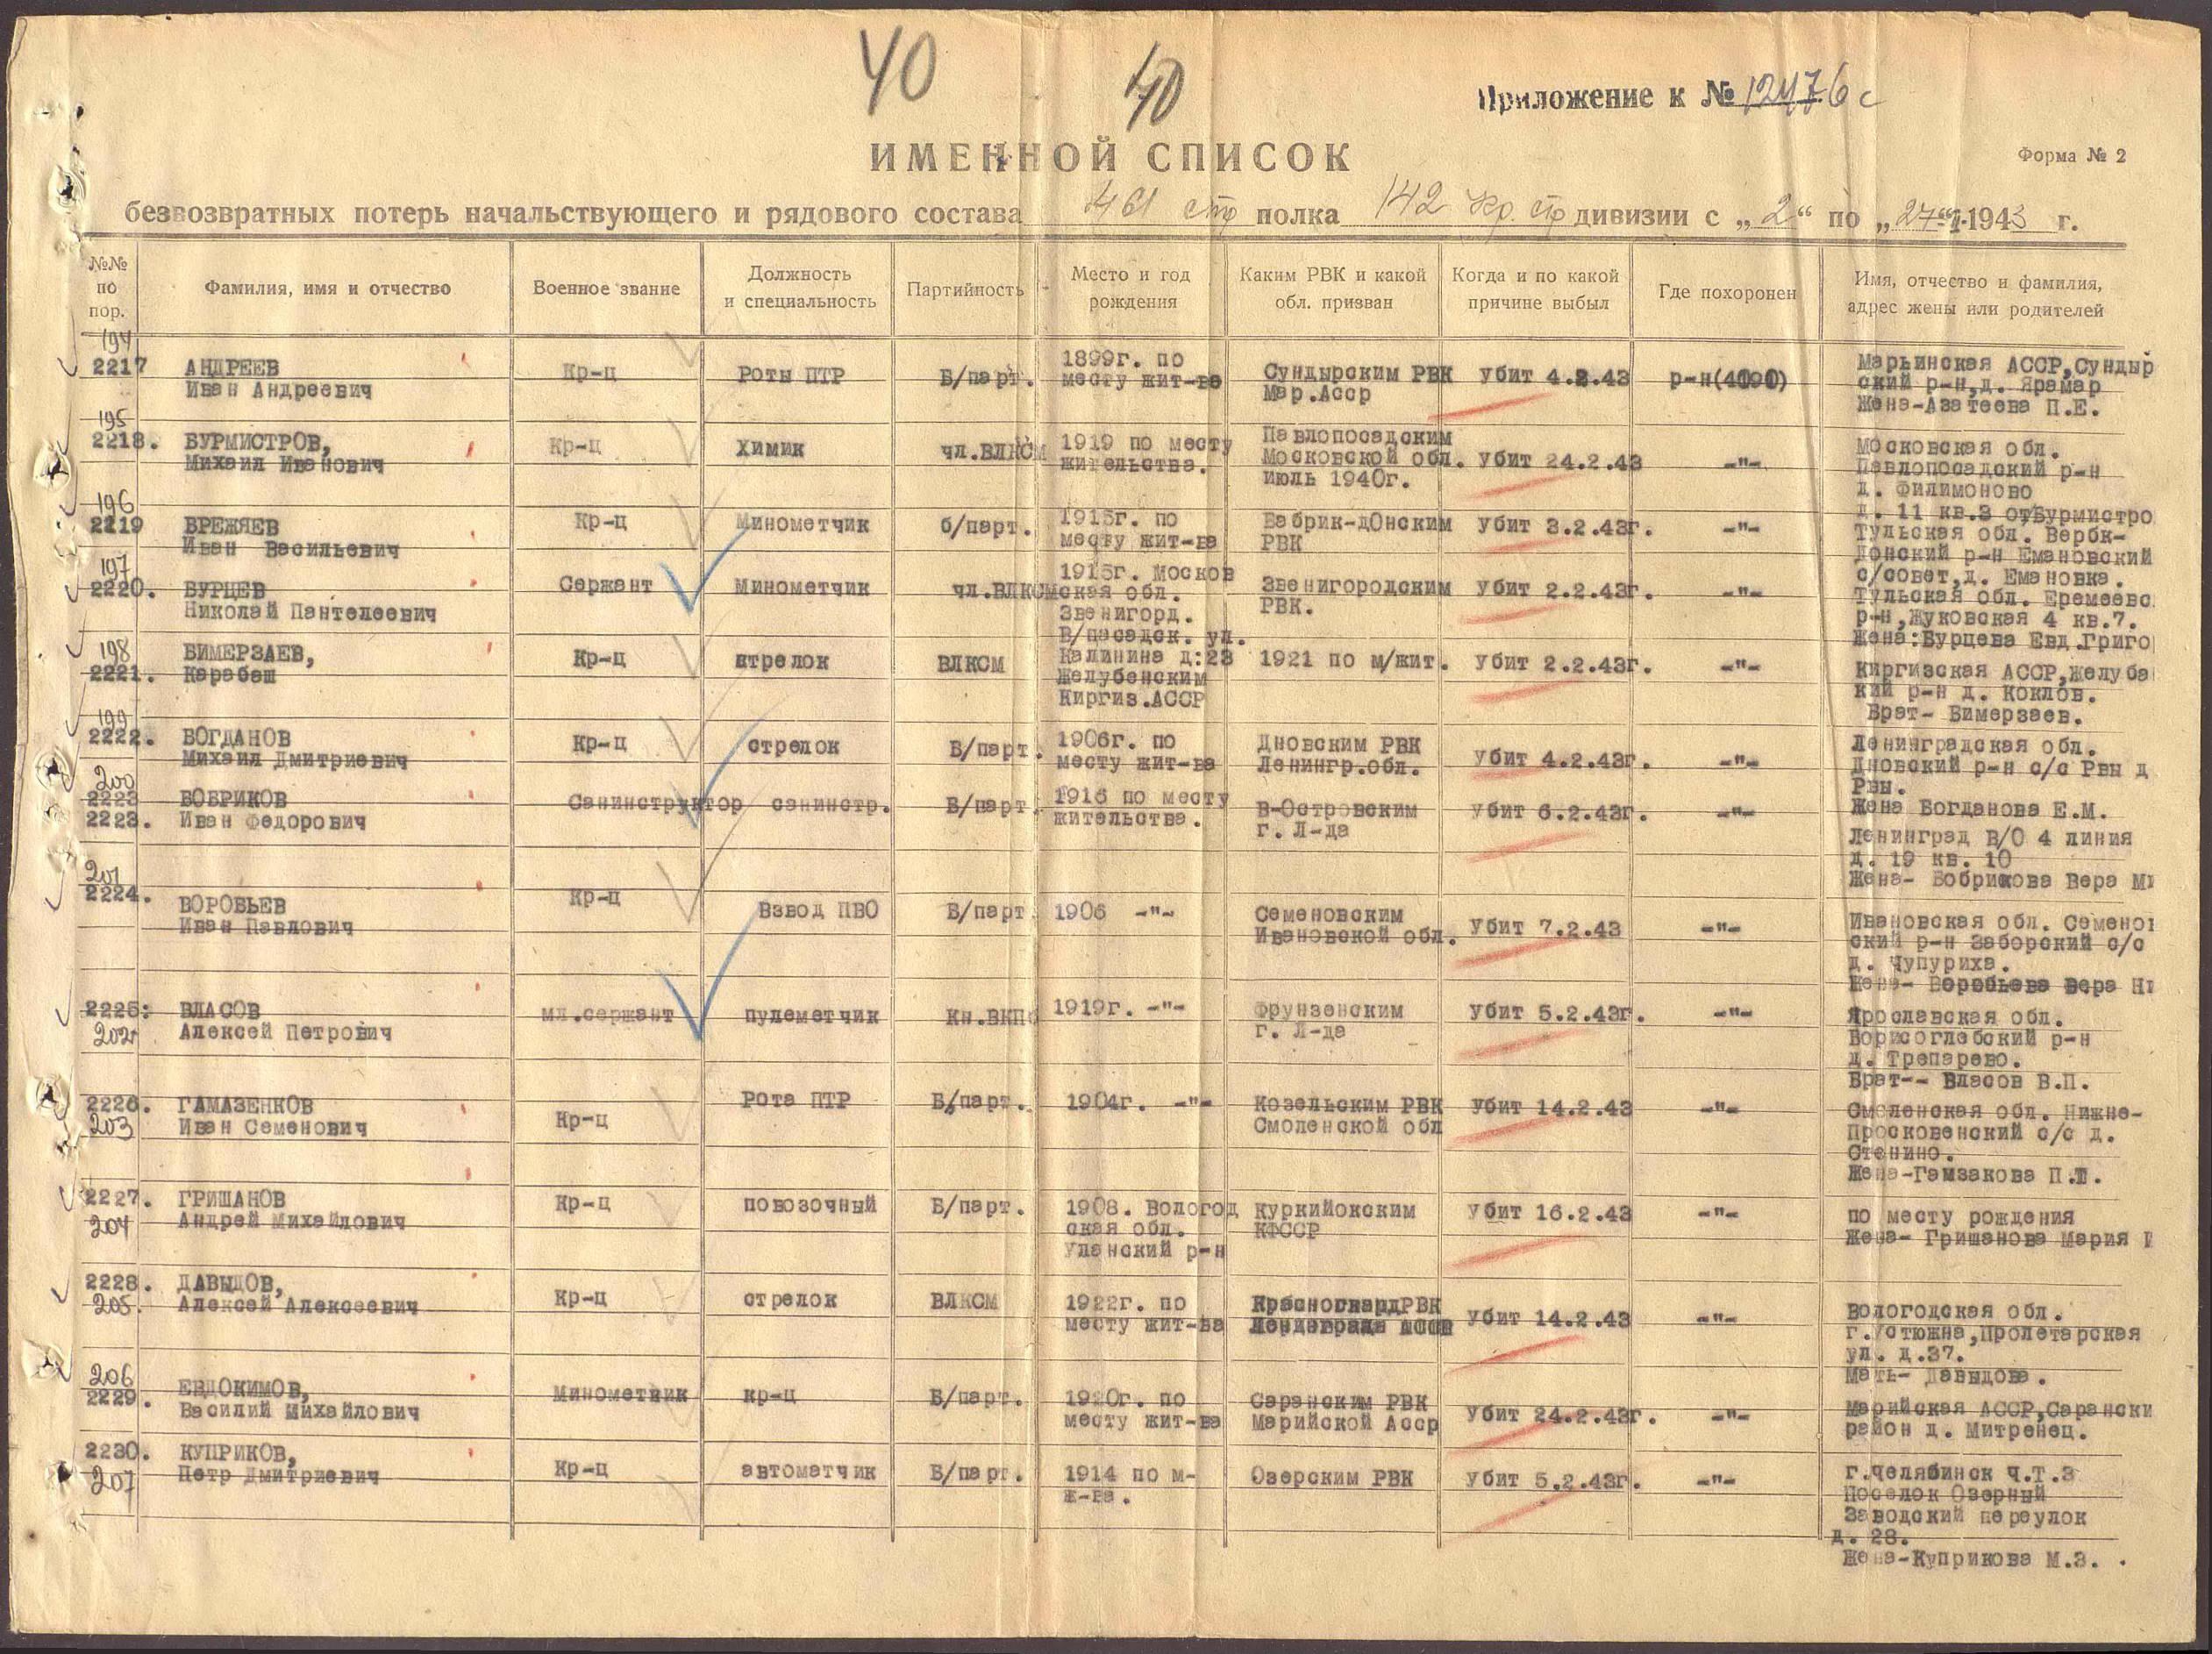 40
40
Приложение к № 12476с
ИМЕННОЙ СПИСОК
Форма № 2
безвозвратных потерь начальствующего и рядового состава 461 стр полка 142 Кр. стр дивизии с „2“ по „27“ 1943 г.
№№ по пор.
Фамилия, имя и отчество
Военное звание
Должность и специальность
Партийность
Место и год рождения
Каким РВК и какой обл. призван
Когда и по какой причине выбыл
Где похоронен
Имя, отчество и фамилия, адрес жены или родителей
194
2217 АНДРЕЕВ Кр-ц Роты ПТР Б/парт. 1899г. по Сундырским РВК убит 4.2.43 р-н Марьинская АССР,Сундыр
Иван Андреевич месту жит-во Мар.Асср ский р-н,д. Ярамар
Жена-Азатеева П.Е.
195
2218. БУРМИСТРОВ, Кр-ц Химик чл.ВЛКСМ 1919 по месту Павлопосадским убит 24.2.43 -"- Московская обл.
Михаил Иванович жительства. Московской обл. Павлопосадский р-н
Июль 1940г. д. Филимоново
д. 11 кв.3 от,Бурмистро
196
2219 БРЕЖЯЕВ Кр-ц Минометчик б/парт. 1915г. по Вабрик-дОнским убит 3.2.43г. -"- Тульская обл. Вербк-
Иван Васильевич месту жит-ва РВК Донский р-н Емановский
с/совет,д. Емановка.
197
2220. БУРЦЕВ Сержант Минометчик чл.ВЛКСМ 1915г. Москов Звенигородским убит 2.2.43г. -"- Тульская обл. Еремеевс
Николай Пантелеевич ская обл. РВК. р-н,Жуковская 4 кв.7.
Звенигорд. Жена:Бурцева Евд.Григо
В/пасадск. ул.
Калинина д:23
198
2221. БИМЕРЗАЕВ, Кр-ц стрелок ВЛКСМ Желубенским 1921 по м/жит. Убит 2.2.43г. -"- Киргизская АССР,Желуба
Карабаш Киргиз.АССР кий р-н д. Коклов.
Брат- Бимерзаев.
199
2222. БОГДАНОВ Кр-ц стрелок Б/парт. 1906г. по Дновским РВК Убит 4.2.43г. -"- Ленинградская обл.
Михаил Дмитриевич месту жит-ва Ленингр.обл. Дновский р-н с/с Рвы д
Рвы.
Жена Богданова Е.М.
200
2223 БОБРИКОВ Санинструктор санинстр. Б/парт. 1916 по месту В-Островским Убит 6.2.43г. -"- Ленинград В/О 4 линия
2223. Иван Федорович жительства. г. Л-да д. 19 кв. 10
Жена- Бобрикова Вера Ми
201
2224. ВОРОБЬЕВ Кр-ц Взвод ПВО Б/парт 1906 -"- Семеновским Убит 7.2.43 -"- Ивановская обл. Семенов
Иван Павлович Ивановской обл. ский р-н Заборский с/с
д. Чупуриха.
Жена- Воробьева Вера Ни
2225: ВЛАСОВ мл.сержант пулеметчик Кн.ВКПб 1919г. -"- Фрунзенским Убит 5.2.43г. -"- Ярославская обл.
202 Алексей Петрович г. Л-да Борисоглебский р-н
д. Трепарево.
Брат-- Власов В.П.
2226. ГАМАЗЕНКОВ Кр-ц Рота ПТР Б/парт. 1904г. -"- Козельским РВК Убит 14.2.43 -"- Смоленская обл. Нижне-
203 Иван Семенович Смоленской обл Просковенский с/с д.
Стенино.
Жена-Гамзакова П.Т.
2227. ГРИШАНОВ Кр-ц повозочный Б/парт. 1908. Вологод Куркийокским Убит 16.2.43 -"- по месту рождения
204 Андрей Михайлович ская обл. КФССР Жена- Гришанова Мария
Уланский р-н
2228. ДАВЫДОВ, Кр-ц стрелок ВЛКСМ 1922г. по КрасногвардРВК Убит 14.2.43 -"- Вологодская обл.
205. Алексей Алексеевич месту жит-ва г.Устюжна,Пролетарская
ул. д.37.
Мать- Давыдова.
206
2229. ЕВДОКИМОВ, Минометвик кр-ц Б/парт. 1920г. по Саранским РВК Убит 24.2.43г. -"- Марийская АССР,Сарански
Василий Михайлович месту жит-ва Марийской Асср район д. Митренец.
2230. КУПРИКОВ, Кр-ц автоматчик Б/парт. 1914 по м- Озерским РВК Убит 5.2.43г. -"- г.Челябинск Ч.Т.З
207 Петр Дмитриевич ж-ва. Поселок Озерный
Заводский переулок
д. 28.
Жена-Куприкова М.З.